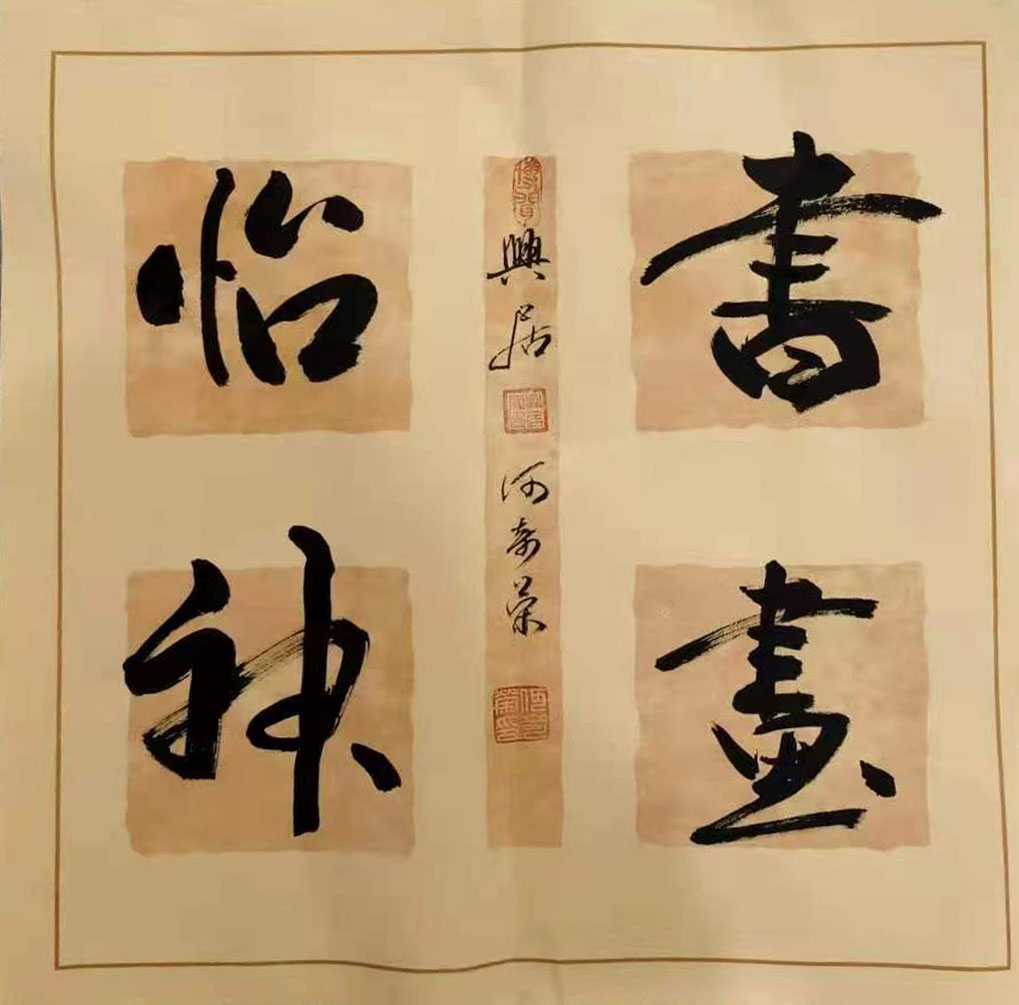 書畫
怡神
興居
何奇榮